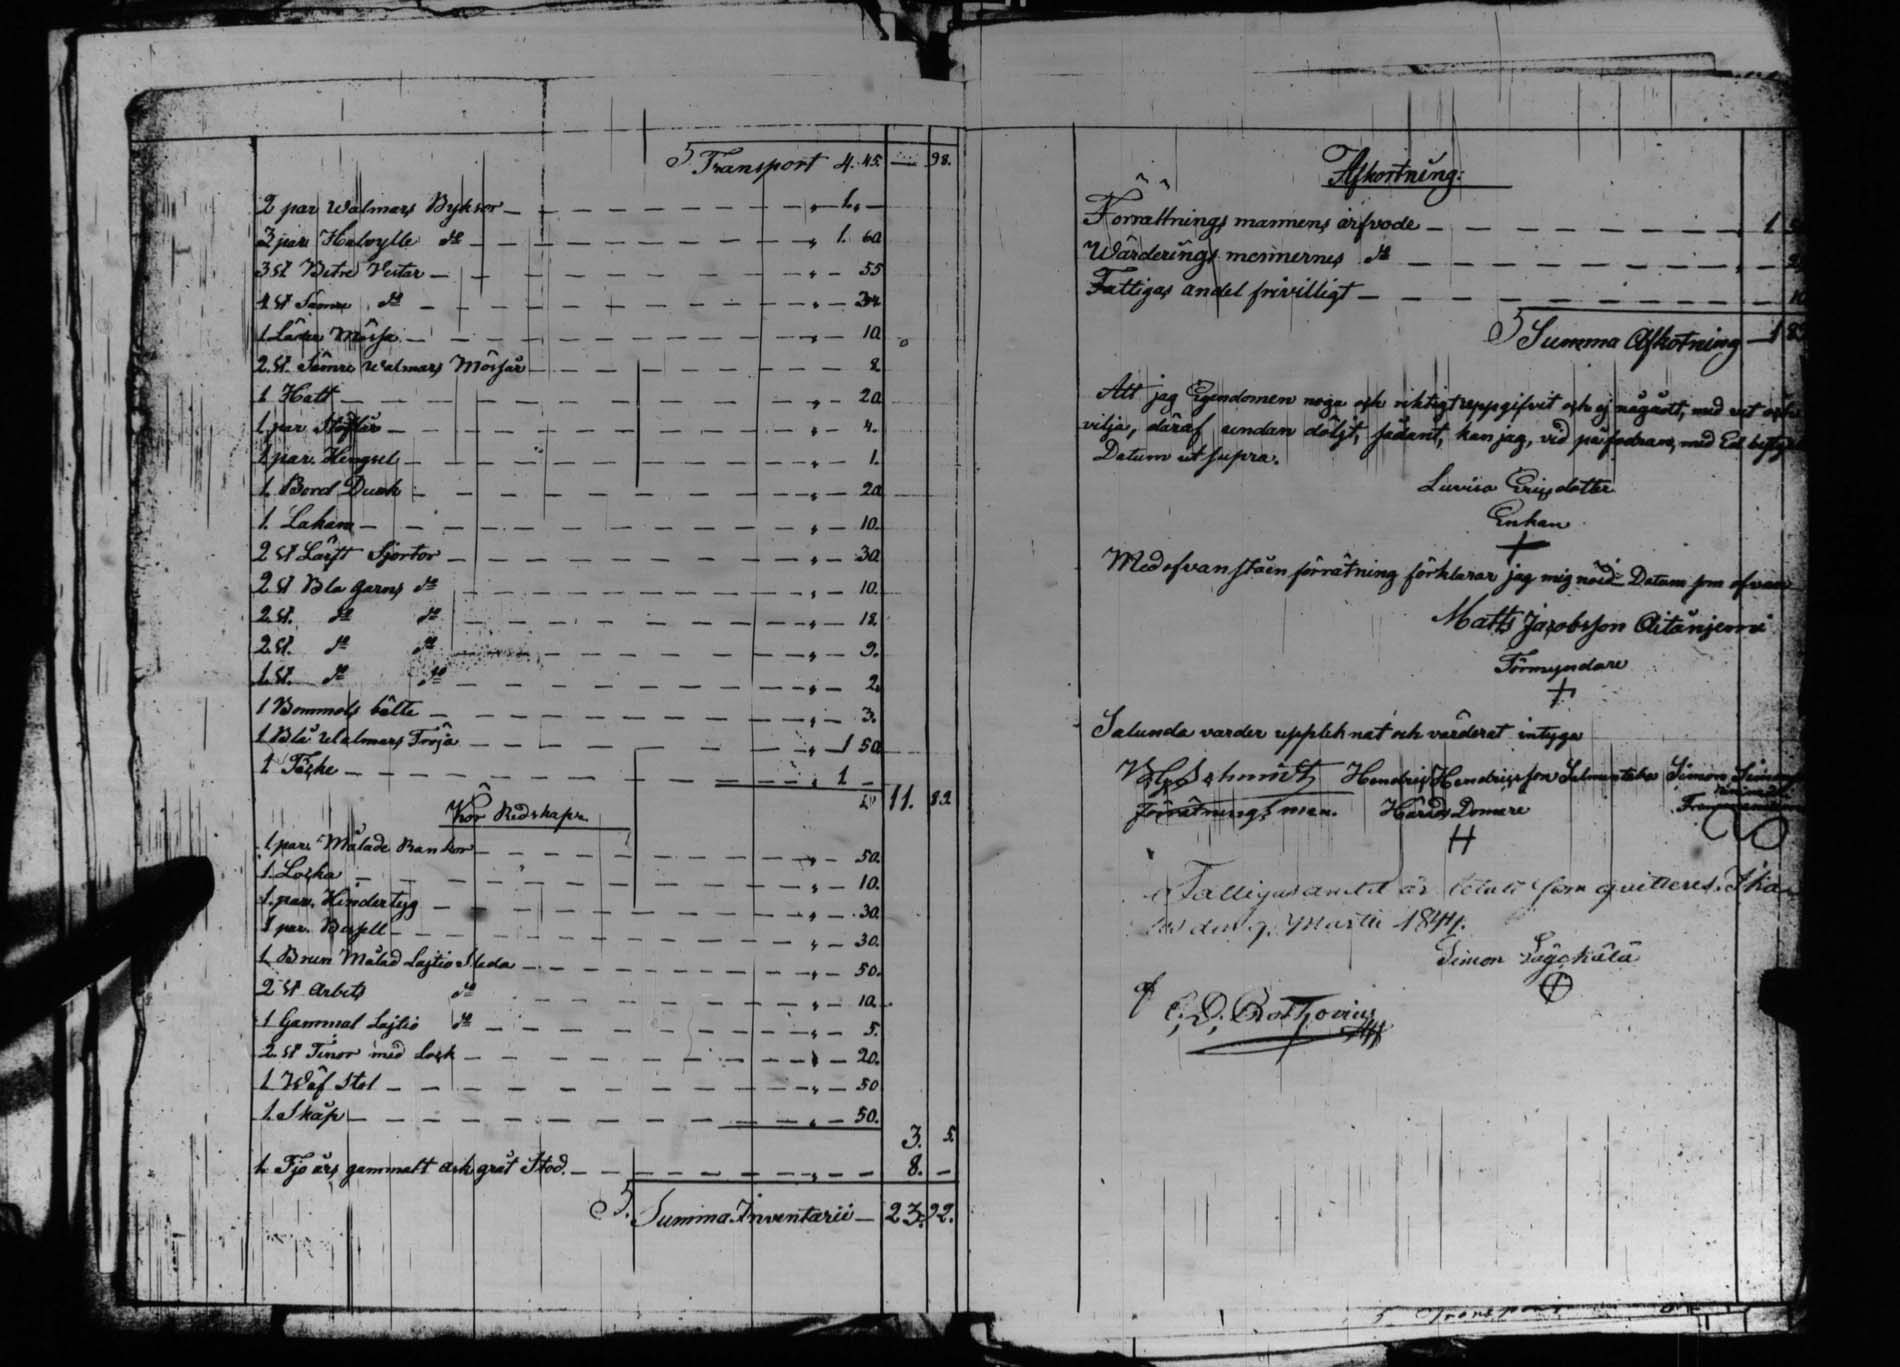 Transport 4. 45. — 98.
2 par Walmars Byksor — 1. —
3 par Halvylle do — 1. 60.
3 st Betre Vestar — 55
st Sämre do —
1 Läder Mössa — 10.
2. st. Sämre Walmars Mössår — 8.
1 Hatt — 20.
1 par — 4.
1 par. Hengsel — 1.
1. Bord Duuk — 20.
1. Lakan — 10.
2 st Lärft Sjortor — 30.
2 st Bla garns do — 10.
2. st. do do — 12.
2 st. do do — 9.
1. st. do do — 2.
1 Bommols bälte — 3.
1 Blå Walmars Tröja — 1 50.
1 Täcke — 1 —
11. 82.
Kör Redskapr.
1 par Målade Rankor — 50.
1. Locka — 10.
1. par. Hindertyg — 30.
1 par. — 30.
1 Brun Målad Lajtio Släda — 50.
2 st Arbets do — 10.
1 Gammal Lajtio do — 5.
2. st Tinor med lock — 20.
1 Wäf Stol — 50
1. Skåp — 50.
3. 5.
1. Tjo års gammalt ask gråt Stod. — 8. —
Summa Inventarii — 23. 92.
Afkortning:
Förrättnings mannens arfvode — 1
Wärderings mennernes do —
Fattigas andel frivilligt — 10
Summa Afkotning — 1 83
Att jag Egendomen noga och riktigt uppgifvit och ej någåot, med vet och
vilja, däraf undan döljt, sådant, kan jag, vid påfodran, med Ed
Datum ut supra.
Luvisa Ericsdotter
Enkan
Med ofvanståen förrätning förklarar jag mig nöid Datum som ofvan
Matts Jacobsson Aitanjemi
Förmyndare
Salunda varder uppteknat och värderat intyga
Schmidt Hendric Hendricsson Simon
Förrätnings man. Härads Domare
H
Fattigas andel är betalt som quitteres.
den 9. Martii 1844.
Simon Lågkälä
C. D. Bothovius
Transport